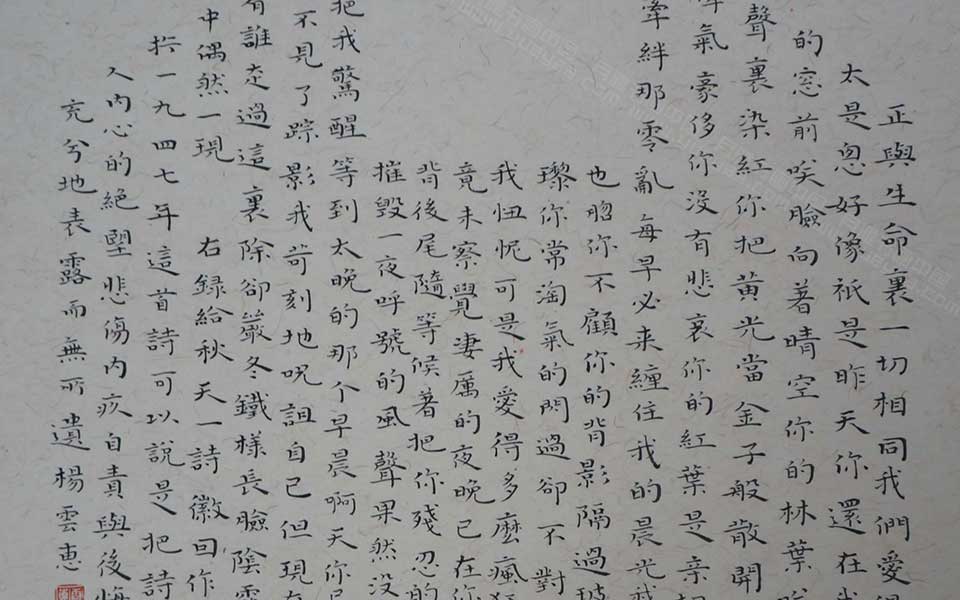 正與生命裏一切相同我們愛得
太是怱好像祇是昨天你還在我
的窓前笑臉向著晴空你的林葉
聲裏染紅你把黃光當金子般散開
氣豪侈你没有悲哀你的紅葉是亲切
牽絆那零亂每早必来纏住我的晨光我
也脗你不顧你的背影隔過玻
瓈你常淘氣的閃過卻不對
我忸怩可是我愛得多麼瘋狂
竟未察覺凄厲的夜晚已在你
背後尾隨等候著把你殘忍的
摧毀一夜呼號的風聲果然没
把我驚醒等到太晚的那个早晨啊天你已
不見了踪影我苛刻地呪詛自己但現在
有誰走過這裏除卻嚴冬鐵樣長臉陰霾
中偶然一現 右録給秋天一詩徽因作
扵一九四七年這首詩可以說是把詩
入內心的絕望悲傷內疚自責與後悔
充兮地表露而無所遺楊雲惠